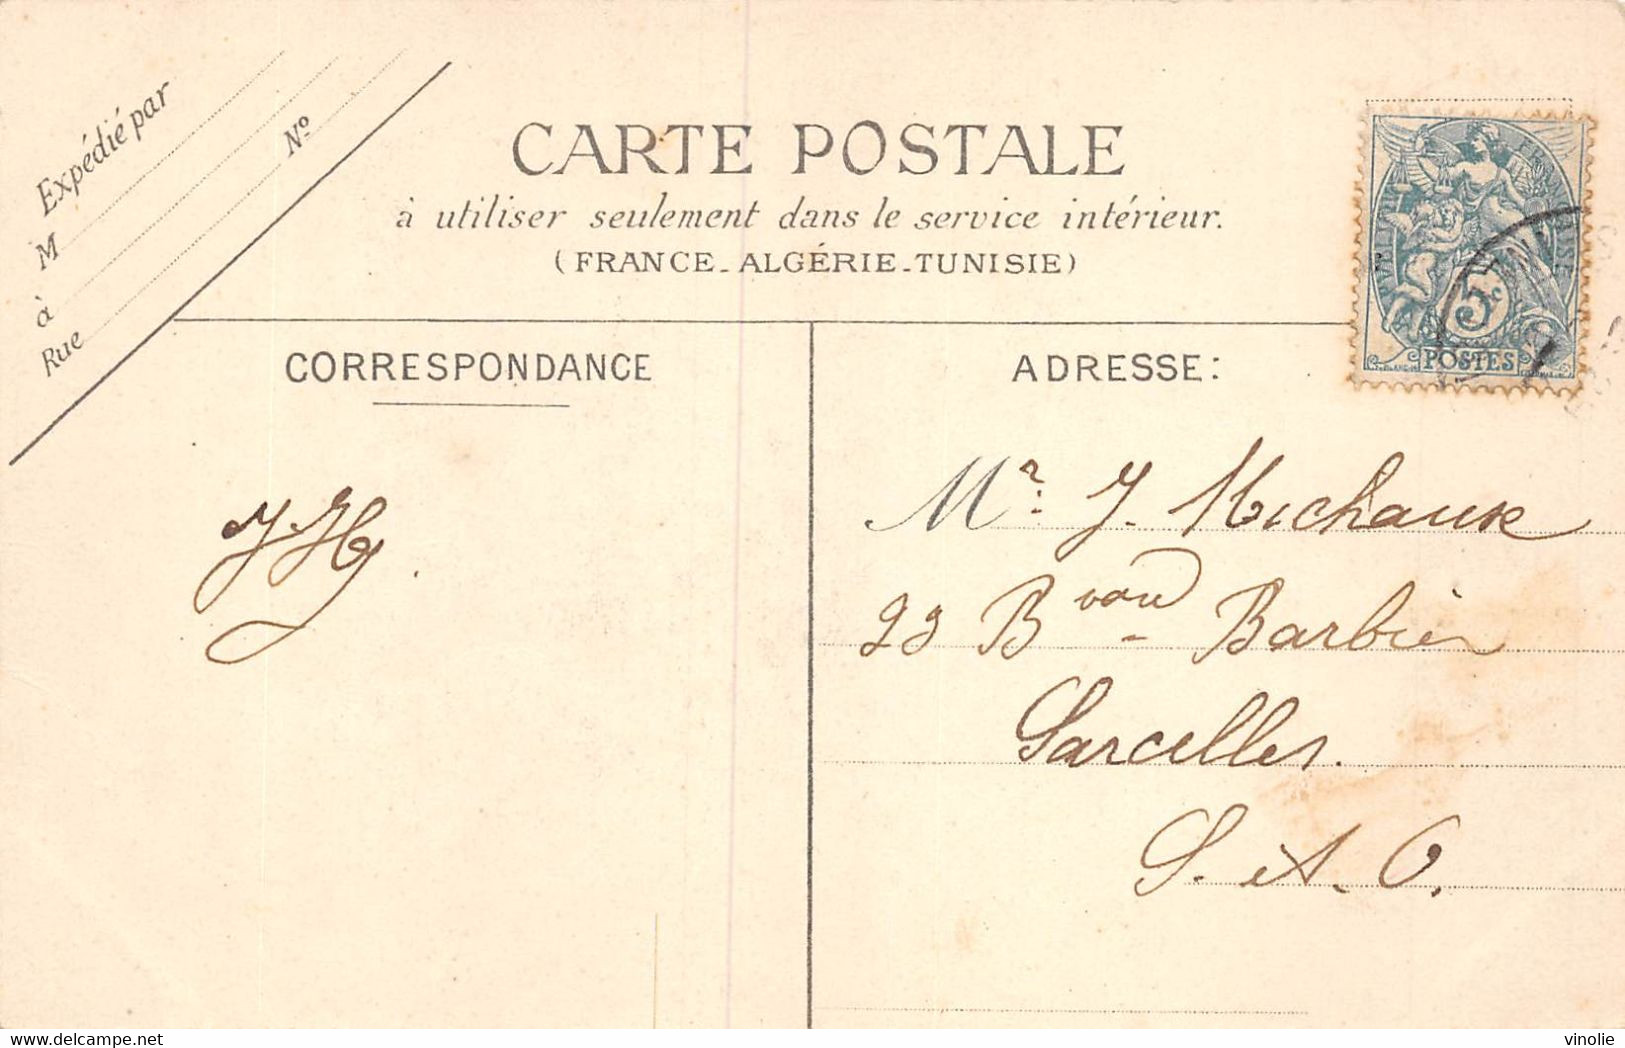 Expédié par
M
à
Rue
N°
CARTE POSTALE
à utiliser seulement dans le service intérieur.
(FRANCE-ALGÉRIE-TUNISIE)
CORRESPONDANCE
ADRESSE:
5c
POSTES
JH
Mr. J. Michaux
23 Bvard Barbier
Sarcelles.
S. et. O.
www.delcampe.net
vinolie